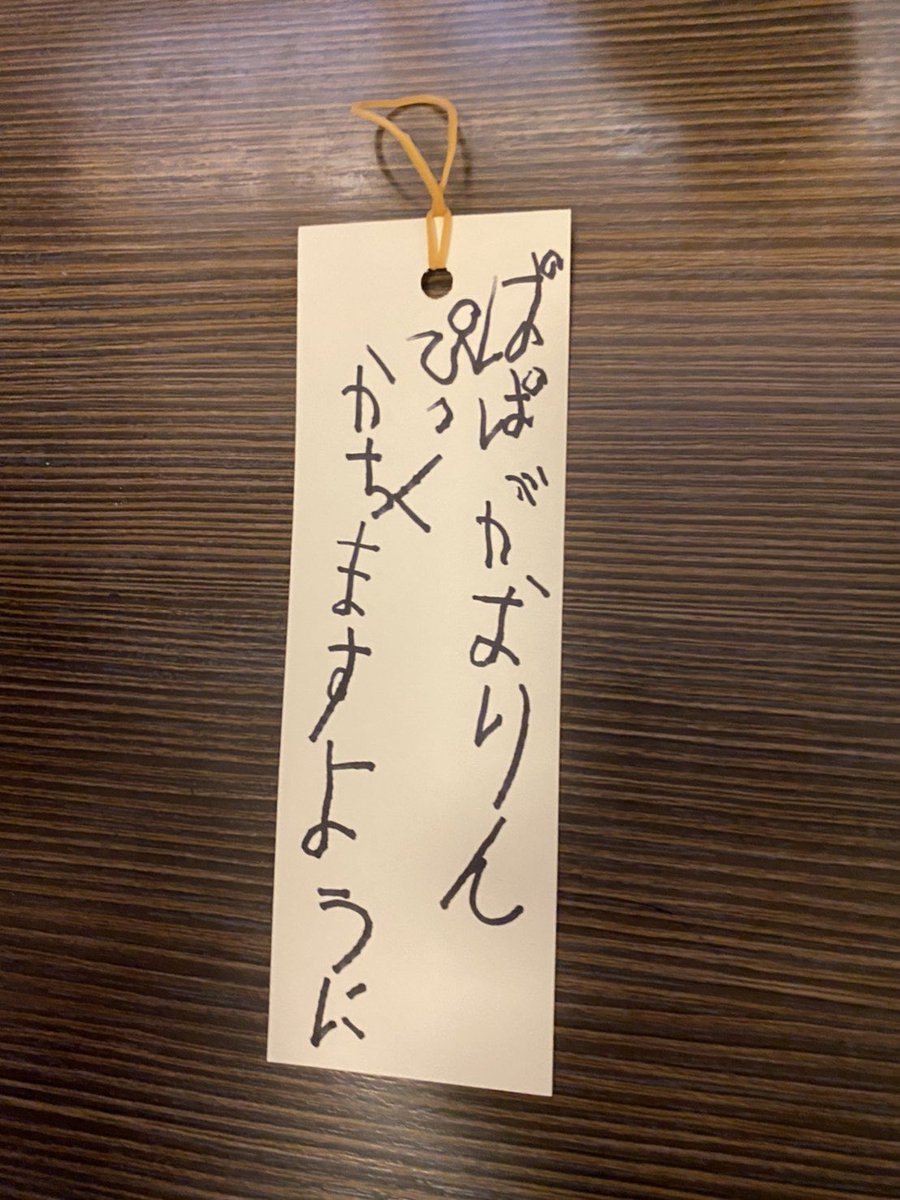 ぱぱがおりん
ぴっく
かちますように